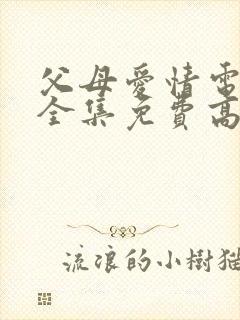 父母愛情電
全集免費高
流浪的小樹猫